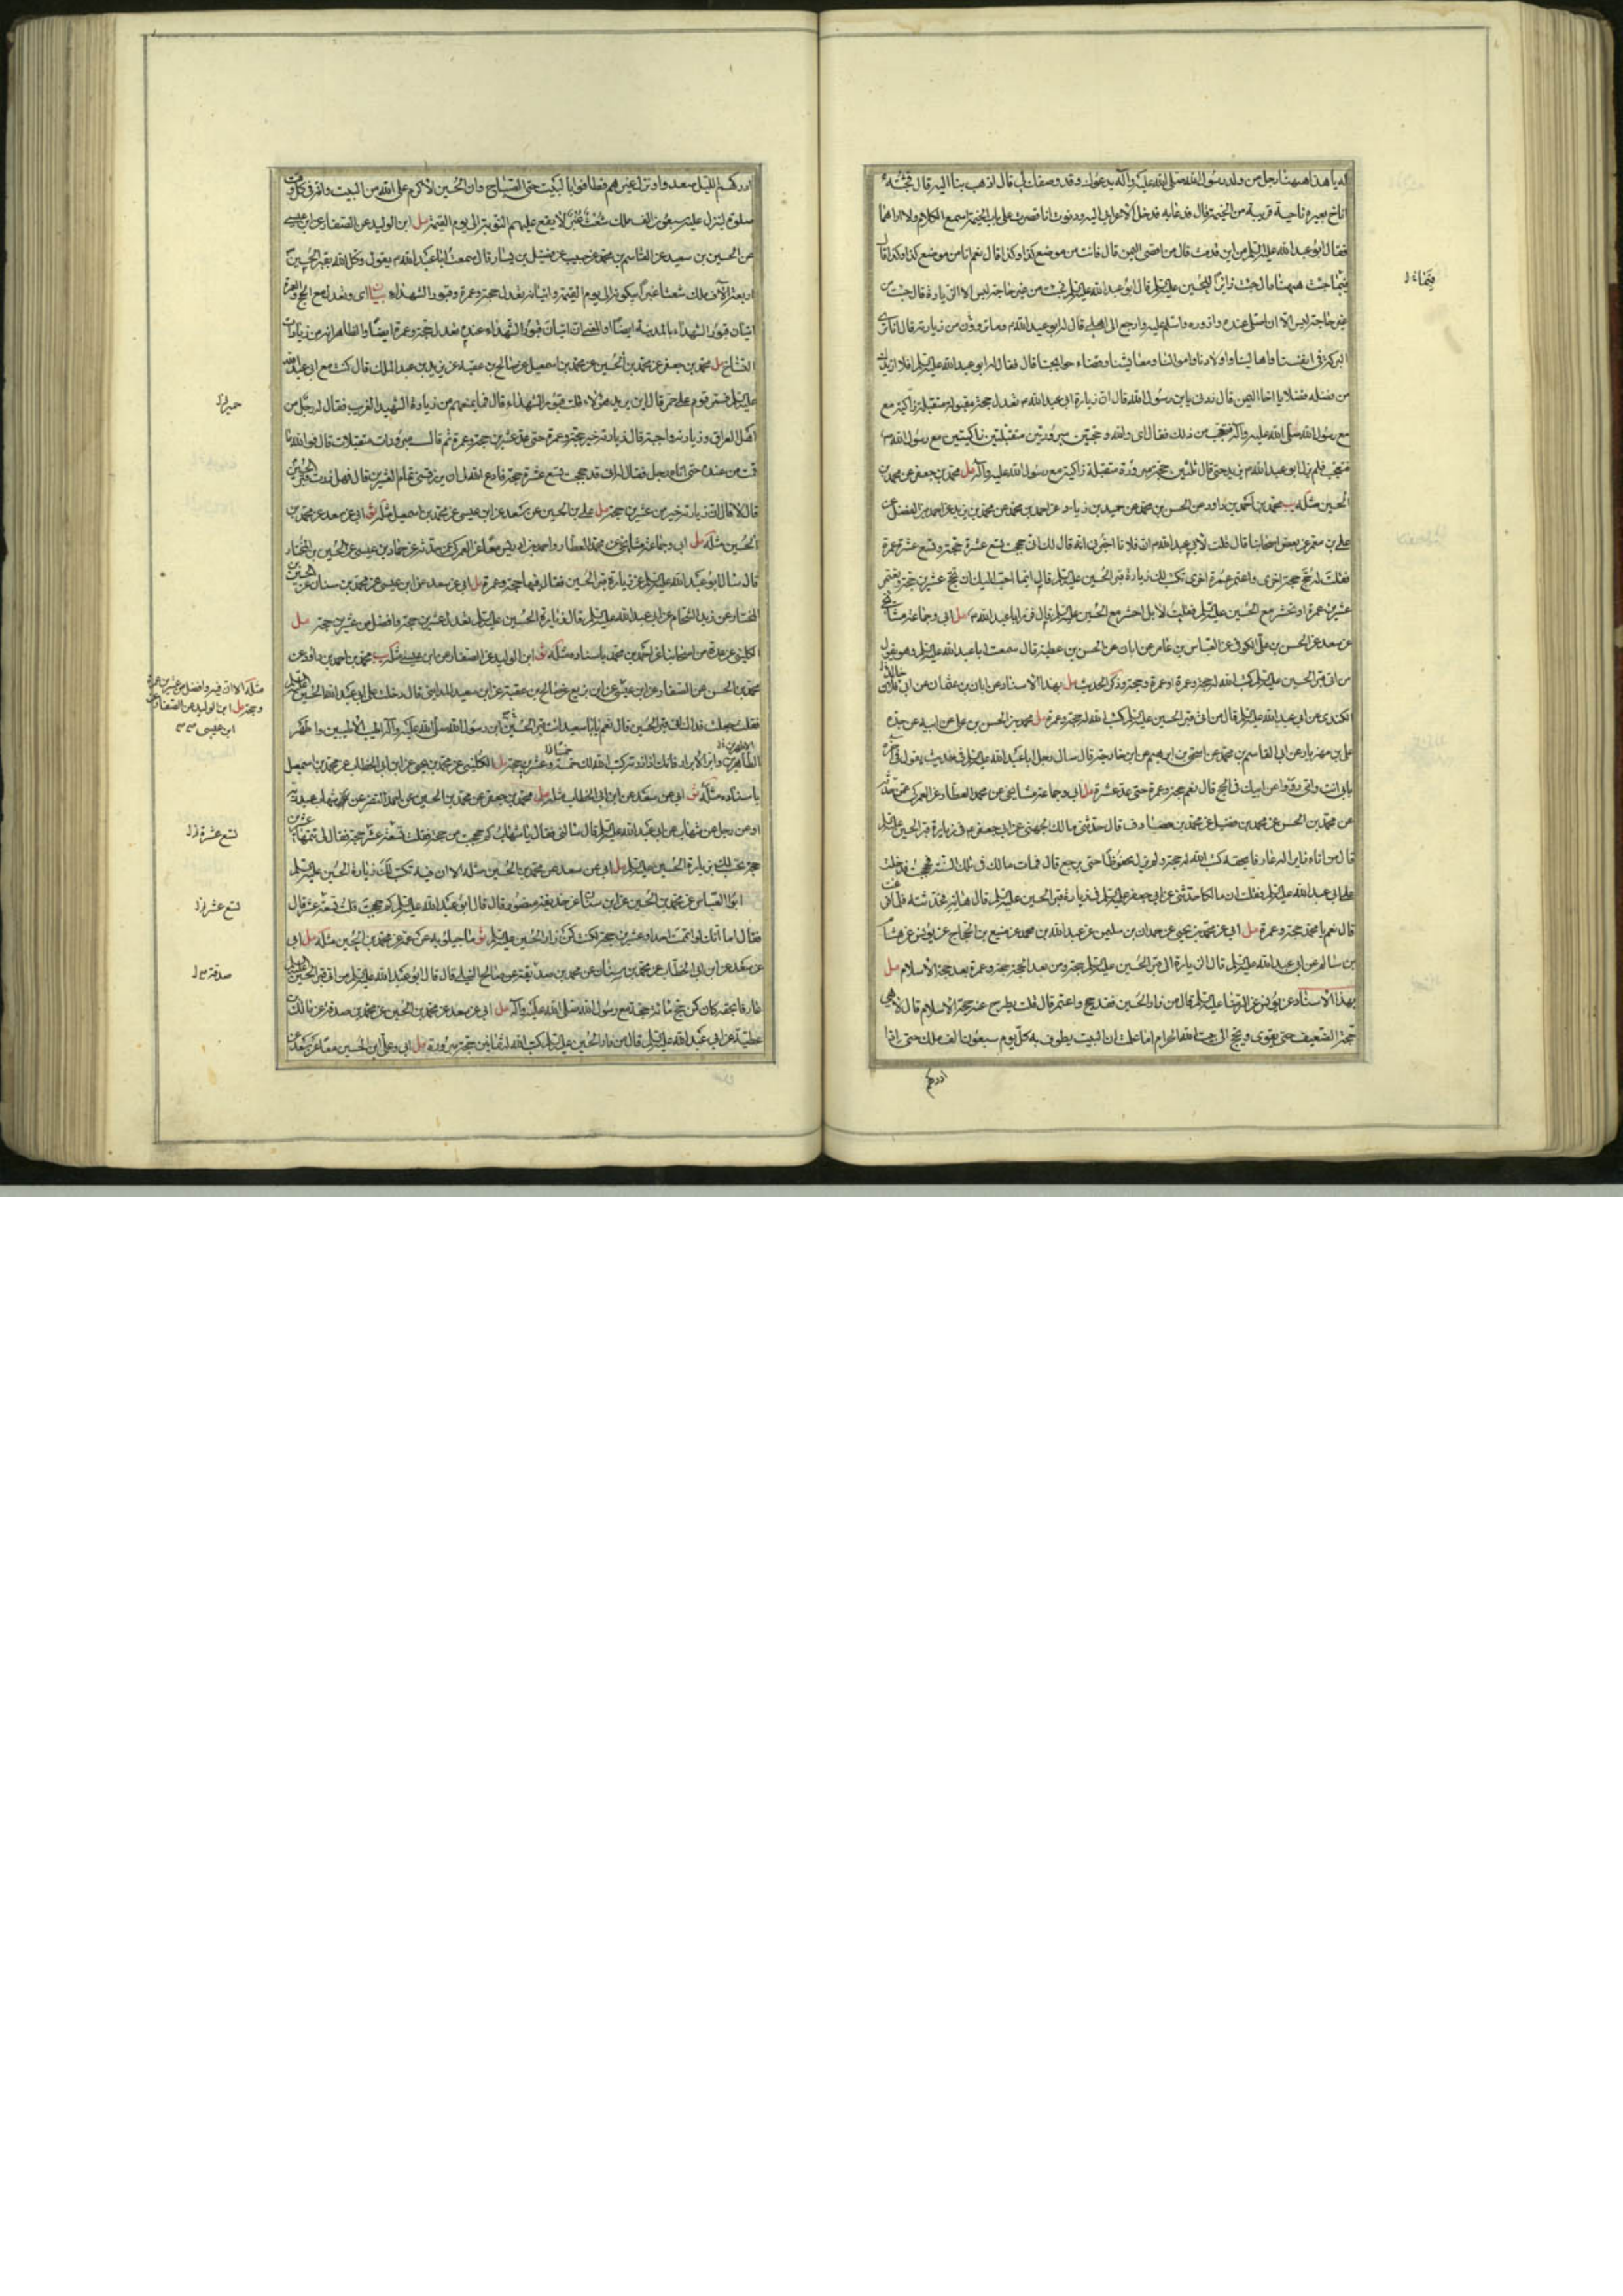 له يا هذا ههنا رجل من ولد رسول الله صلى الله عليه وآله يدعوك وقد وصفك لي قال اذهب بنا اليه قال فجئته
اناخ بعيره ناحية قريبة من الخيمة قال قد عابه فدخل الاعرابي اليه ودنوت انا فصرت على باب الخيمة اسمع الكلام ولا اراهما
فقال ابو عبد الله عليه السلم من اين قدمت قال من اقصى اليمن قال فانت من موضع كذا وكذا قال نعم انا من موضع كذا وكذا قال
فبما جئت ههنا قال جئت زائرا للحسين عليه السلم قال ابو عبد الله عليه السلم فجئت من غير حاجة ليس الا الزيارة قال جئت من
غير حاجة ليس الا ان اصلي عنده وازوره واسلم عليه وارجع الى اهلي قال له ابو عبد الله م وما ترون من زيارته قال انا نرى
البركة في انفسنا واهالينا واولادنا واموالنا ومعايشنا وقضاء حوايجنا قال فقال له ابو عبد الله عليه السلم افلا ازيدك
من فضله فضلا يا اخا اليمن قال زدني يا بن رسول الله قال ان زيارة ابي عبد الله م تعدل حجة مقبولة متقبلة زاكية مع
مع رسول الله صلى الله عليه وآله فتعجب من ذلك فقال اي والله وحجتين مبرورتين متقبلتين زاكيتين مع رسول الله م
فتعجب فلم يزل ابو عبد الله م يزيد حتى قال ثلثين حجة مبرورة متقبلة زاكية مع رسول الله عليه وآله مل محمد بن جعفر عن محمد بن
الحسين مثله يب محمد بن احمد بن داود عن الحسن بن محمد عن حميد بن زياد عن احمد بن محمد عن محمد بن يزيد عن احمد بن الفضل عن
علي بن معمر عن بعض اصحابنا قال قلت لابي عبد الله م ان فلانا اخبرني انه قال لك اني حججت تسع عشرة حجة وتسع عشرة عمرة
فقلت له حج حجة اخرى واعتمر عمرة اخرى تكتب لك زيارة قبر الحسين عليه السلم فقال ايما احب اليك ان تحج عشرين حجة وتعتمر
عشرين عمرة او تحشر مع الحسين عليه السلم فقلت لا بل احشر مع الحسين عليه السلم قال فزر ابا عبد الله م مل ابي وجماعة مشايخي
عن سعد عن الحسن بن علي الكوفي عن العباس بن عامر عن ابان عن الحسن بن عطية قال سمعت ابا عبد الله عليه السلم وهو يقول
من اتى قبر الحسين عليه السلم كتب الله له حجة وعمرة او عمرة وحجة وذكر الحديث مل بهذا الاسناد عن ابان بن عثمان عن ابي فلان
الكندي عن ابي عبد الله عليه السلم قال من اتى قبر الحسين عليه السلم كتب الله له حجة وعمرة مل محمد بن الحسن بن علي عن ابيه عن جده
علي بن مهزيار عن ابي القاسم بن محمد عن اسحق بن ابراهيم عن ابن خارجة قال سال رجل ابا عبد الله عليه السلم في حديث يقول في آخره
بابي انت واني رووا عن ابيك في الحج قال نعم حجة وعمرة حتى عد عشرة مل ابي وجماعة مشايخي عن محمد العطار عن العمركي عمن حدثه
عن محمد بن الحسن عن محمد بن فضيل عن محمد بن مصادف قال حدثني مالك الجهني عن ابي جعفر م في زيارة قبر الحسين عليه السلم
قال من اتاه زايرا له عارفا بحقه كتب الله له حجة ولم يزل محفوظا حتى يرجع قال فمات مالك في تلك السنة وحججت فدخلت
على ابي عبد الله عليه السلم فقلت ان مالكا حدثني عن ابي جعفر عليه السلم في زيارة قبر الحسين عليه السلم قال هاته فحدثته فلما فرغت
قال نعم يا محمد حجة وعمرة مل ابي عن محمد بن يحيى عن حمدان بن سليمن عن عبد الله بن محمد عن منيع بن الحجاج عن يونس عن هشام
بن سالم عن ابي عبد الله عليه السلم قال ان زيارة الى قبر الحسين عليه السلم حجة ومن بعد الحجة حجة وعمرة بعد حجة الاسلام مل
بهذا الاسناد عن يونس عن الرضا عليه السلم قال من زار الحسين فقد حج واعتمر قال قلت يطرح عنه حجة الاسلام قال لا هي
حجة الضعيف حتى يقوى ويحج الى بيت الله الحرام اما علمت ان البيت يطوف به كل يوم سبعون الف ملك حتى اذا
ادركهم
ادركهم الليل صعدوا ونزل غيرهم فطافوا بالبيت حتى الصباح وان الحسين لاكرم على الله من البيت وانه في كل وقت
صلوة لينزل عليه سبعون الف ملك شعث غبر لا يقع عليهم النوبة الى يوم القيمة مل ابن الوليد عن الصفار عن ابن عيسى
عن الحسين بن سعيد عن القاسم بن محمد عن حبيب عن فضيل بن يسار قال سمعت ابا عبد الله م يقول وكل الله بقبر الحسين
اربعة آلاف ملك شعثا غبرا يبكونه الى يوم القيمة واتيانه يعدل حجة وعمرة وقبور الشهداء بيان اي ويعدل مع الحج والعمرة
اتيان قبور الشهداء بالمدينة ايضا او المعنى ان اتيان قبور الشهداء عنده يعدل حجة وعمرة ايضا والظاهر انه من زيادات
النساخ مل محمد بن جعفر عن محمد بن الحسين عن محمد بن اسمعيل عن صالح بن عقبة عن يزيد بن عبد الملك قال كنت مع ابي عبد الله
عليه السلم فمر قوم على حمر قال اين يريد هؤلاء قلت قبور الشهداء قال فما يمنعهم من زيارة الشهيد الغريب فقال له رجل من
اهل العراق وزيارته واجبة قال زيارته خير من حجة وعمرة حتى عد عشرين حجة وعمرة ثم قال مبرورات متقبلات قال فوالله ما
قمت من عنده حتى اتاه رجل فقال له اني قد حججت تسع عشرة حجة فادع الله لي ان يرزقني تمام العشرين قال فهل زرت قبر الحسين
قال لا قال ان زيارته خير من عشرين حجة مل علي بن الحسين عن سعد عن ابن عيسى عن محمد بن اسمعيل مثله ثو ابي عن سعد عن محمد بن
الحسين مثله مل ابي وجماعة مشايخي عن محمد العطار واحمد بن ادريس معا عن العمركي عمن حدثه عن حماد بن عيسى عن الحسين بن المختار
قال سئل ابو عبد الله عليه السلم عن زيارة قبر الحسين فقال فيها حجة وعمرة مل ابي عن سعد عن ابن عيسى عن محمد بن سنان عن الحسين بن
المختار عن زيد الشحام عن ابي عبد الله عليه السلم قال زيارة الحسين عليه السلم تعدل عشرين حجة وافضل من عشرين حجة مل
الكليني عن عدة من اصحابنا عن احمد بن محمد باسناده مثله ثو ابن الوليد عن الصفار عن ابن عيسى مثله يب محمد بن احمد بن داود عن
محمد بن الحسن عن الصفار عن ابن عيسى عن ابن بزيع عن صالح بن عقبة عن ابي سعيد المدايني قال دخلت على ابي عبد الله عليه السلم
فقلت جعلت فداك اتي قبر الحسين قال نعم يا با سعيد ائت قبر الحسين ابن رسول الله صلى الله عليه وآله اطيب الاطيبين واطهر
الطاهرين وابر الابرار فانك اذا زرته كتب الله لك خمسة وعشرين حجة مل الكليني عن محمد بن يحيى عن ابن ابي الخطاب عن محمد بن اسمعيل
باسناده مثله ثو ابي عن سعد عن ابن ابي الخطاب مثله مل محمد بن جعفر عن محمد بن الحسين عن احمد بن النضر عن شهاب بن عبد ربه
او عن رجل عن شهاب عن ابي عبد الله عليه السلم قال سألني فقال يا شهاب كم حججت من حجة فقلت تسعة عشر حجة فقال لي تممها عشرين
حجة تكتب لك زيارة الحسين عليه السلم مل ابي عن سعد عن محمد بن الحسين مثله الا ان فيه تكتب لك زيارة الحسين عليه السلم
ابو العباس عن محمد بن الحسين عن ابن سنان عن حذيفة بن منصور قال قال ابو عبد الله عليه السلم كم حججت قلت تسعة عشر قال
فقال اما انك لو اتممت احدا وعشرين حجة لكنت كمن زار الحسين عليه السلم ثو ماجيلويه عن عمه عن محمد بن الحسين مثله مل ابي
عن سعد عن ابن ابي الخطاب عن محمد بن سنان عن محمد بن صدقة عن صالح النيلي قال قال ابو عبد الله عليه السلم من اتى قبر الحسين
عارفا بحقه كان كمن حج مائة حجة مع رسول الله صلى الله عليه وآله مل ابي عن سعد عن محمد بن الحسين عن محمد بن صدقة عن مالك بن
عطية عن ابي عبد الله عليه السلم قال من زار الحسين عليه السلم كتب الله له ثمانين حجة مبرورة مل ابي وعلي ابن الحسين معا عن سعد عن
حمير ل
مثله الا ان فيه وافضل من عشرين عمرة
وحجة مل ابن الوليد عن الصفار عن
ابن عيسى
لتسع عشرة ل
لتسع عشر ل
صدقة ل